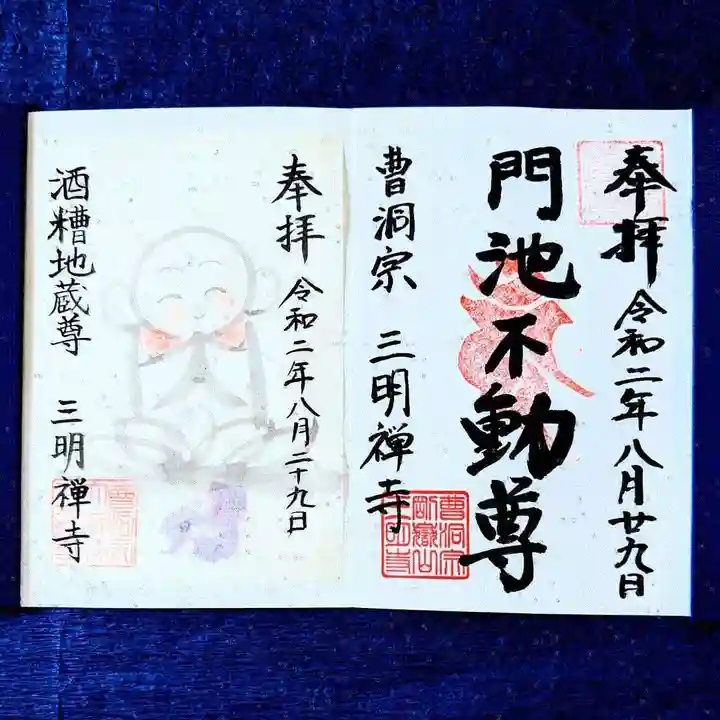 奉拝 令和二年八月廿九日
門池不動尊
曹洞宗 三明禅寺
奉拝 令和二年八月二十九日
酒糟地蔵尊 三明禅寺